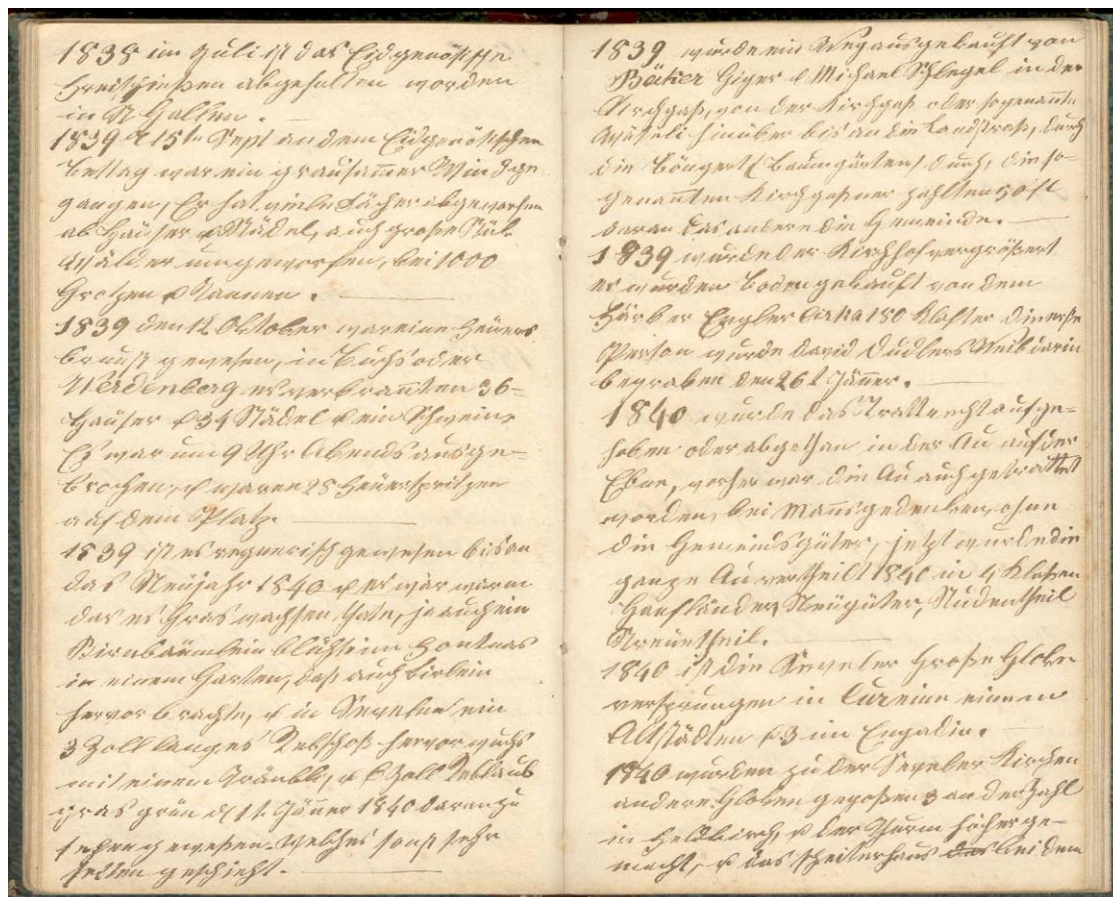 1838 im Juli ist das Eidgenösische
Freischießen abgehalten worden
in St Gallen.
1839 d 15t Sept an dem Eidgenösischen
Bettag war ein grausamer Wind ge
gangen, Er hat viele Dächer abgeworfen
ab Häuser u Städel, auch große Stük
Wälder umgeworfen, bei 1000
Grotzen u Tannen.
1839 den 12 Oktober war eine Feüers
brunst gewesen, in Buchs oder
Werdenberg es verbrannten 36-
Häuser u 34 Städel u ein Schwein,
Es war um 9 Uhr Abends ausge-
brochen, u waren 28 Feüerspritzen
auf dem Platz.
1839 ist es regnerisch gewesen bis an
das Neüjahr 1840 u es war warm
das es Gras wachsen thate, ja auch ein
Birnbäumlein blühte im Fontnas
in einem Garten, das auch birlein
hervor brachte, u in Sevelen ein
3 Zoll langes Rebschoß hervor wuchs
mit einem Träubli, u 6 Zoll Reblaub
gras grün d 1t Jänner 1840 daran zu
sehen gewesen. Welches sonst sehr
selten geschieht.
1839 wurde ein Weg ausgekauft von
Giger u Michael Schlegel in der
Kirchgaß, von der Kirchgaß oder sogenannte
hinüber bis an die Landstraß, durch
die Böngert (Baumgärten) durch, die so-
genannten Kirchgaßner zahlten 50 fl
daran das andere die Gemeinde.
1839 wurde der Kirchhof vergrößert
es wurden Boden gekauft von dem
Färber Engler cirka 180 Klafter die erste
Person wurde David Dudlers Weib darin
begraben den 26t Jänner.
1840 wurde das Trattrecht aufge-
hoben oder abgethan in der Au auf der
Ebne, vorher war die Au auch getrattet
worden, bei Mannsgedenken, ohne
die Gemeindsgüter, jetzt wurde die
ganze Au vertheilt 1840 in 4 Klaßen
Hanfländer, Neügüter, Studentheil
Streüetheil.
1840 ist die Seveler Große Gloke
versprungen in Cur eine einen in
Altstädten u 3 im Engadin.
1840 wurden zu der Seveler Kirchen
andere Gloken gegoßen 3 an der Zahl
in Feldkirch, u der Thurm höher ge-
macht, u das Scheiterhaus das bei dem